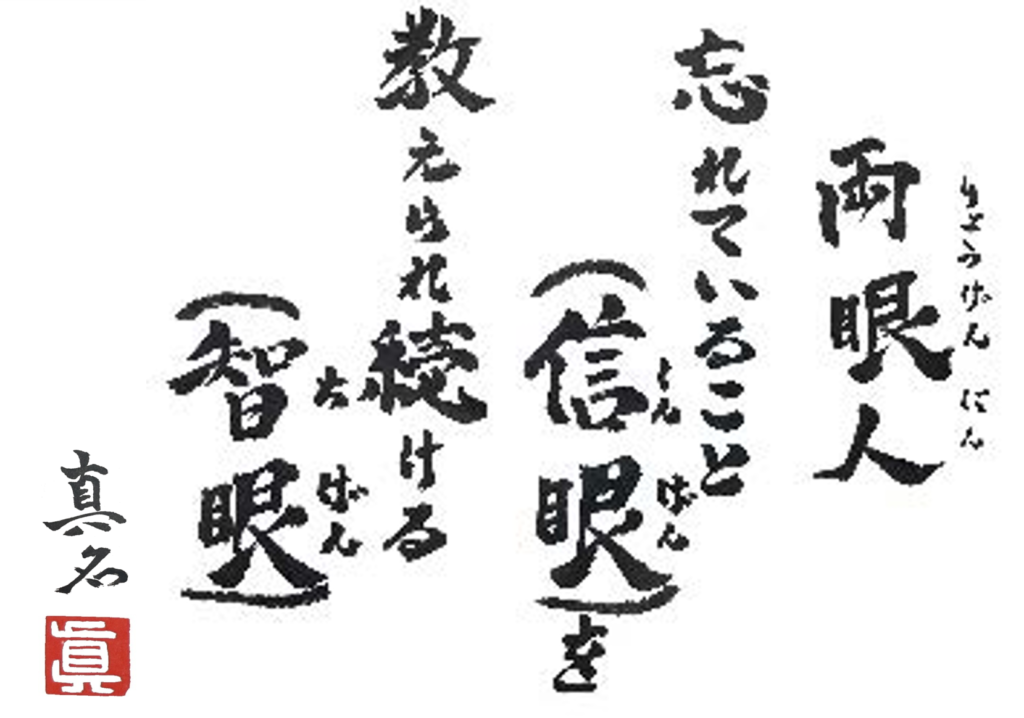 りょうげんにん
両眼人
忘れていること
しんげん
(信眼)を
教えられ続ける
ちげん
(智眼)
真名
眞